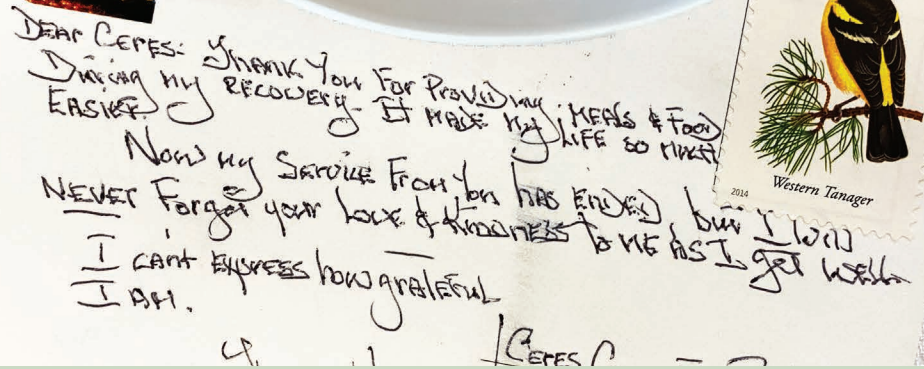 DEAR CERES: THANK YOU FOR PROVIDING MEALS & FOOD
DURING MY RECOVERY. IT MADE MY LIFE SO MUCH
EASIER.
NOW MY SERVICE FROM YOU HAS ENDED, but I will
NEVER Forget your Love & KINDNESS TO ME AS I get well.
I CAN'T EXPRESS how grateful
I AM.
CERES
2014 Western Tanager